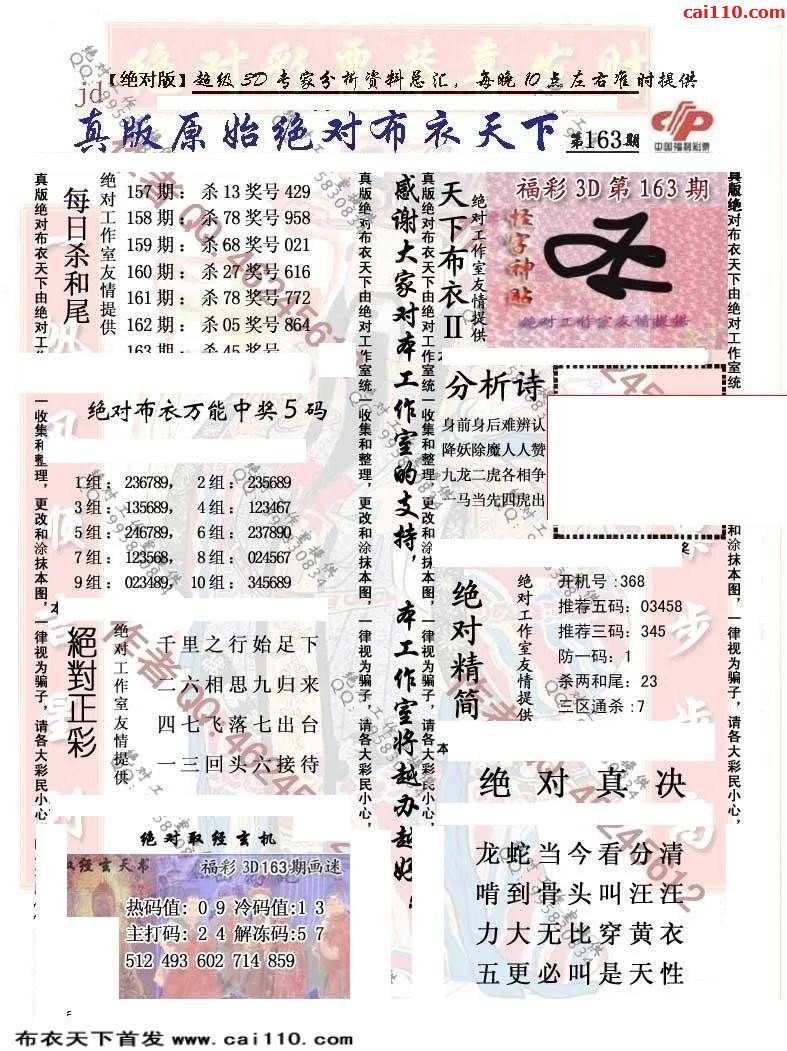 cai110.com
【绝对版】超级3D专家分析资料总汇，每晚10点左右准时提供
jd
真版原始绝对布衣天下
第163期
中国福利彩票
每日杀和尾
绝对工作室友情提供
157期：杀13奖号429
158期：杀78奖号958
159期：杀68奖号021
160期：杀27奖号616
161期：杀78奖号772
162期：杀05奖号864
163期：杀45奖号
绝对布衣万能中奖5码
1组：236789，2组：235689
3组：135689，4组：123467
5组：246789，6组：237890
7组：123568，8组：024567
9组：023489，10组：345689
絕對正彩
绝对工作室友情提供
千里之行始足下
二六相思九归来
四七飞落七出台
一三回头六接待
绝对取经玄机
取经玄天书
福彩3D163期画迷
热码值：09冷码值：13
主打码：24解冻码：57
512 493 602 714 859
真版绝对布衣天下由绝对工作室统一收集和整理，更改和涂抹本图，一律视为骗子，请各大彩民小心，
真版绝对布衣天下由绝对工作室统一收集和整理，更改和涂抹本图，一律视为骗子，请各大彩民小心，
感谢大家对本工作室的支持，本工作室将越办越好
真版绝对布衣天下由绝对工作室统一收集和整理，更改和涂抹本图，一律视为骗子，请各大彩民小心，
天下布衣II
绝对工作室友情提供
福彩3D第163期
怪字神贴
绝对工作室友情提供
分析诗
身前身后难辨认
降妖除魔人人赞
九龙二虎各相争
一马当先四虎出
绝对精简
绝对工作室友情提供
开机号:368
推荐五码：03458
推荐三码：345
防一码：1
杀两和尾：23
三区通杀:7
绝对真决
龙蛇当今看分清
啃到骨头叫汪汪
力大无比穿黄衣
五更必叫是天性
真版绝对布衣天下由绝对工作室统
和涂抹本图，一律视为骗子，请各大彩民小心，
布衣天下首发 www.cai110.com